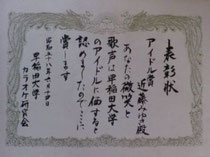 表彰状
アイドル賞
近藤みゆき殿
あなたの微笑と
歌声は早稲田大学
のアイドルに価すると
認めましたのでここに
賞します
昭和五十八年六月二十四日
早稲田大学
カラオケ研究会